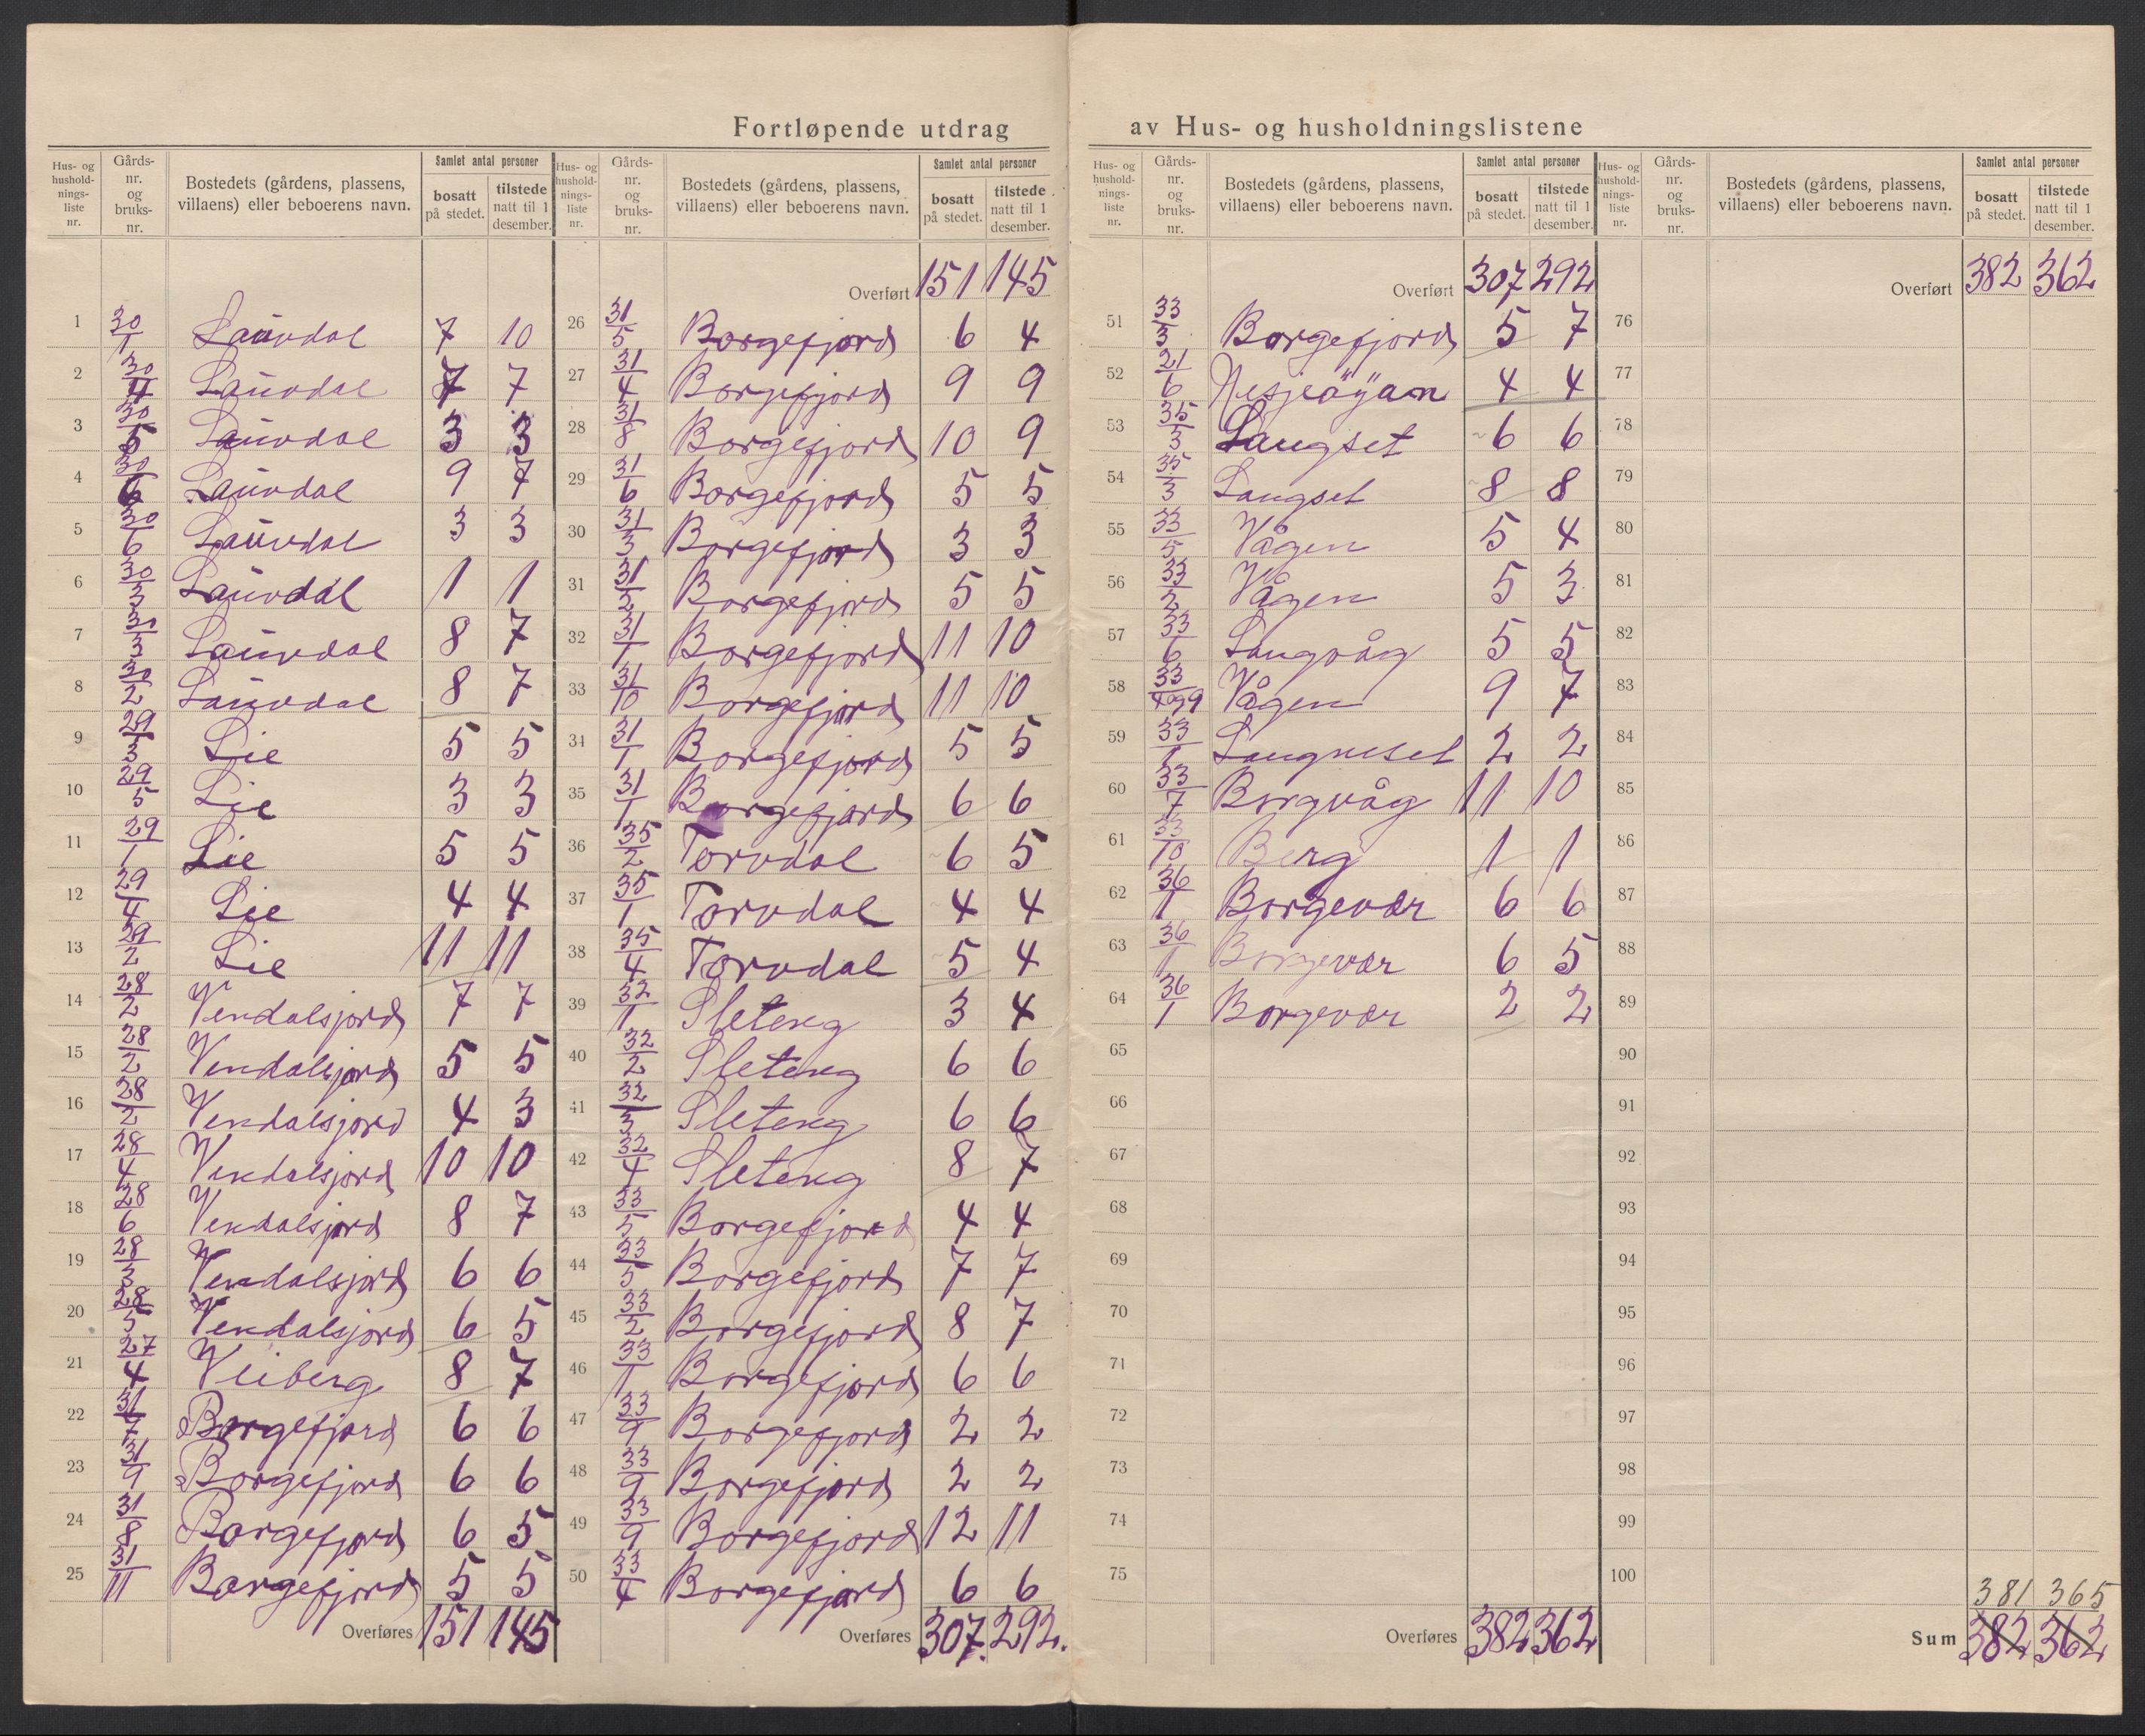 Fortløpende utdrag av Hus- og husholdningslistene
Hus- og husholdnings-liste nr. | Gårds-nr. og bruks-nr. | Bostedets (gårdens, plassens, villaens) eller beboerens navn. | Samlet antal personer bosatt på stedet. | tilstede natt til 1 desember.
1 30/1 Lauvdal 7 10
2 30/4 Lauvdal 7 7
3 30/5 Lauvdal 3 3
4 30/6 Lauvdal 9 7
5 30/6 Lauvdal 3 3
6 30/3 Lauvdal 1 1
7 30/3 Lauvdal 8 7
8 30/2 Lauvdal 8 7
9 29/3 Lie 5 5
10 29/5 Lie 3 3
11 29/1 Lie 5 5
12 29/4 Lie 4 4
13 29/2 Lie 11 11
14 28/2 Vendalsjord 7 7
15 28/2 Vendalsjord 5 5
16 28/2 Vendalsjord 4 3
17 28/4 Vendalsjord 10 10
18 28/6 Vendalsjord 8 7
19 28/3 Vendalsjord 6 6
20 28/5 Vendalsjord 6 5
21 27/4 Veiberg 8 7
22 31/7 Borgefjord 6 6
23 31/9 Borgefjord 6 6
24 31/8 Borgefjord 6 5
25 31/11 Borgefjord 5 5
Overføres 151 145
Hus- og husholdnings-liste nr. | Gårds-nr. og bruks-nr. | Bostedets (gårdens, plassens, villaens) eller beboerens navn. | Samlet antal personer bosatt på stedet. | tilstede natt til 1 desember.
Overført 151 145
26 31/5 Borgefjord 6 4
27 31/4 Borgefjord 9 9
28 31/8 Borgefjord 10 9
29 31/6 Borgefjord 5 5
30 31/3 Borgefjord 3 3
31 31/2 Borgefjord 5 5
32 31/1 Borgefjord 11 10
33 31/10 Borgefjord 11 10
34 31/1 Borgefjord 5 5
35 31/1 Borgefjord 6 6
36 35/2 Torvdal 6 5
37 35/1 Torvdal 4 4
38 35/4 Torvdal 5 4
39 32/1 Sleteng 3 4
40 32/2 Sleteng 6 6
41 32/3 Sleteng 6 6
42 32/4 Sleteng 8 7
43 33/5 Borgefjord 4 4
44 33/5 Borgefjord 7 7
45 33/2 Borgefjord 8 7
46 33/1 Borgefjord 6 6
47 33/9 Borgefjord 2 2
48 33/9 Borgefjord 2 2
49 33/9 Borgefjord 12 11
50 33/4 Borgefjord 6 6
Overføres 307. 292.
Hus- og husholdnings-liste nr. | Gårds-nr. og bruks-nr. | Bostedets (gårdens, plassens, villaens) eller beboerens navn. | Samlet antal personer bosatt på stedet. | tilstede natt til 1 desember.
Overført 307 292
51 33/3 Borgefjord 5 7
52 21/6 Nesjeöyan 4 4
53 35/3 Langset 6 6
54 35/3 Langset 8 8
55 33/5 Vågen 5 4
56 33/2 Vågen 5 3
57 33/6 Langvåg 5 5
58 33/4og9 Vågen 9 7
59 33/1 Langneset 2 2
60 33/7 Borgvåg 11 10
61 33/10 Berg 1 1
62 36/1 Borgevær 6 6
63 36/1 Borgevær 6 5
64 36/1 Borgevær 2 2
65
66
67
68
69
70
71
72
73
74
75
Overføres 382 362
Hus- og husholdnings-liste nr. | Gårds-nr. og bruks-nr. | Bostedets (gårdens, plassens, villaens) eller beboerens navn. | Samlet antal personer bosatt på stedet. | tilstede natt til 1 desember.
Overført 382 362
76
77
78
79
80
81
82
83
84
85
86
87
88
89
90
91
92
93
94
95
96
97
98
99
100
381 365
Sum 382 362